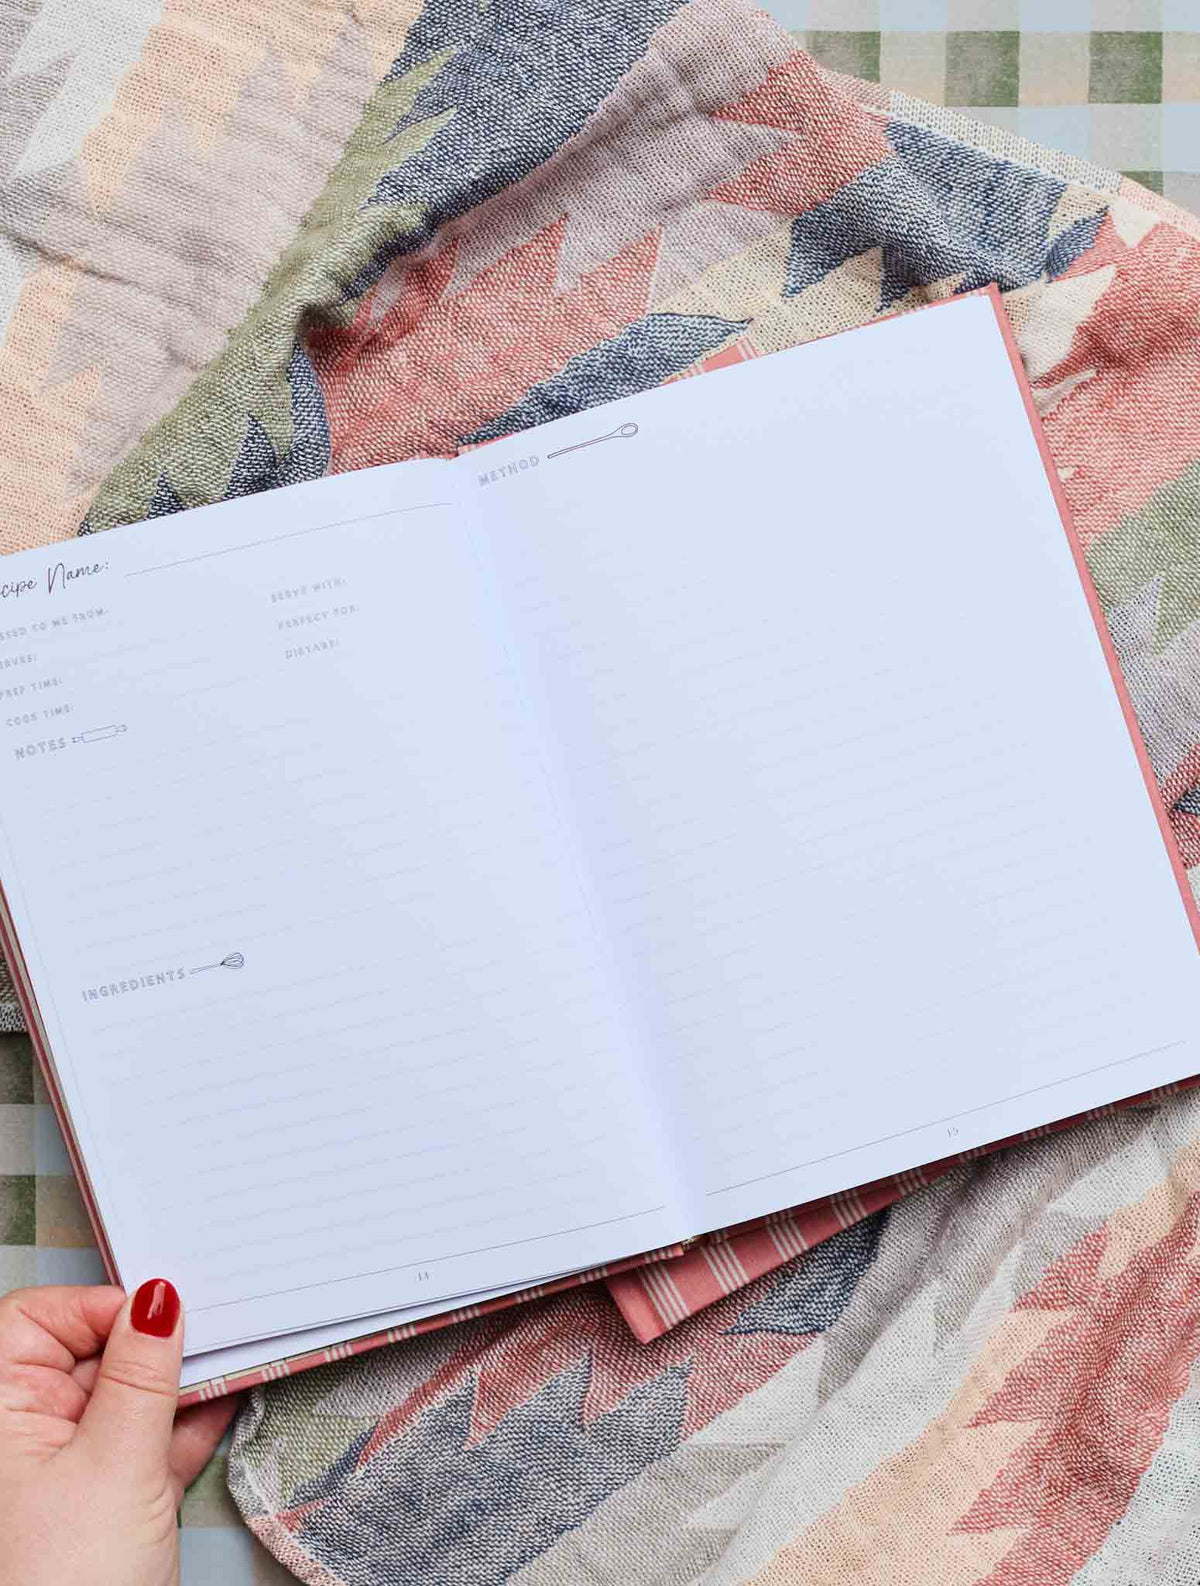 cipe Name:
SSED TO ME FROM:
ERVES:
PREP TIME:
COOK TIME:
SERVE WITH:
PERFECT FOR:
DIETARY:
NOTES
INGREDIENTS
14
METHOD
15